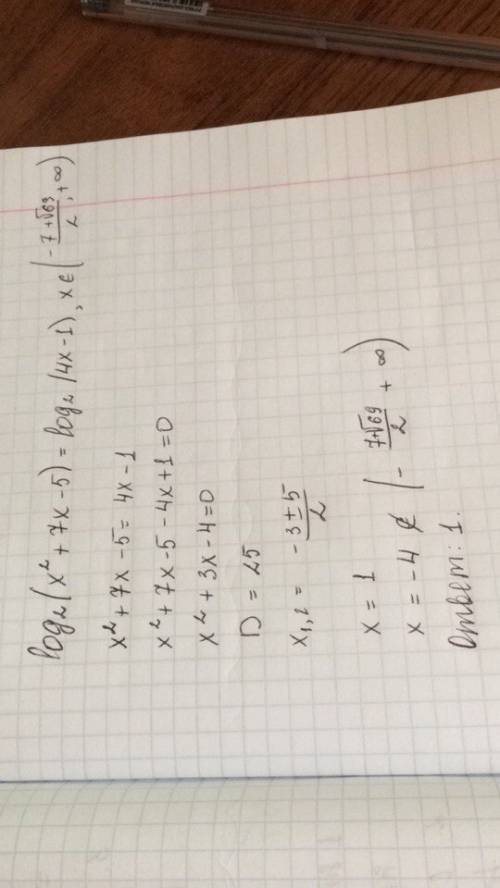 log₂(x² + 7x - 5) = log₂(4x - 1), x ∈ (\frac{-7+√69}{2}, +∞)
x² + 7x - 5 = 4x - 1
x² + 7x - 5 - 4x + 1 = 0
x² + 3x - 4 = 0
D = 25
x₁,₂ = \frac{-3 ± 5}{2}
x = 1
x = -4 ∉ (-\frac{7+√69}{2} + ∞)
Ответ: 1.